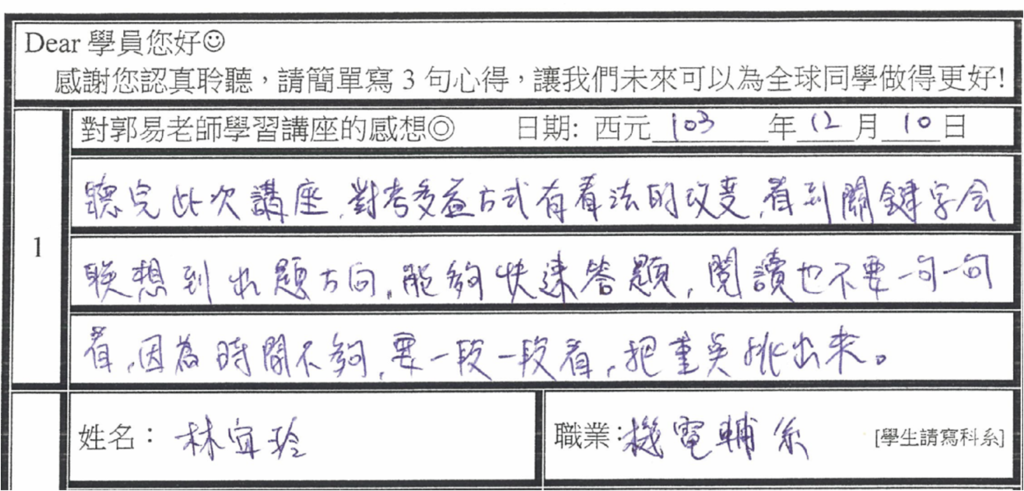 Dear 學員您好☺
感謝您認真聆聽，請簡單寫 3 句心得，讓我們未來可以為全球同學做得更好!
1
對郭易老師學習講座的感想◎ 日期: 西元 103 年 12 月 10 日
聽完此次講座,對考多益方式有看法的改变,看到關鍵字会
联想到出題方向,能夠快速答題,閱讀也不要一句一句
看,因為時間不夠,要一段一段看,把重点挑出來。
姓名： 林宜玲
職業: 機電輔系 [學生請寫科系]